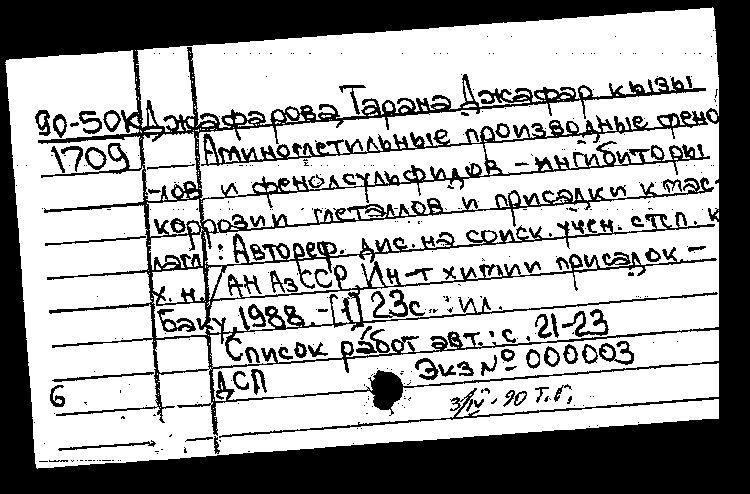 90-50к Джафарова, Тарана Джафар кызы
1709 Аминометильные производные фено
-лов и фенолсульфидов - ингибиторы
коррозии металлов и присадки к мас-
лам : Автореф. дис. на соиск. учен. степ. к
х. н. / АН АзССР, Ин-т химии присадок. -
Баку, 1988. - [1] 23с. : ил.
Список работ авт.: с. 21-23
6 ДСП Экз № 000003
3/IV-90 Т.Г.